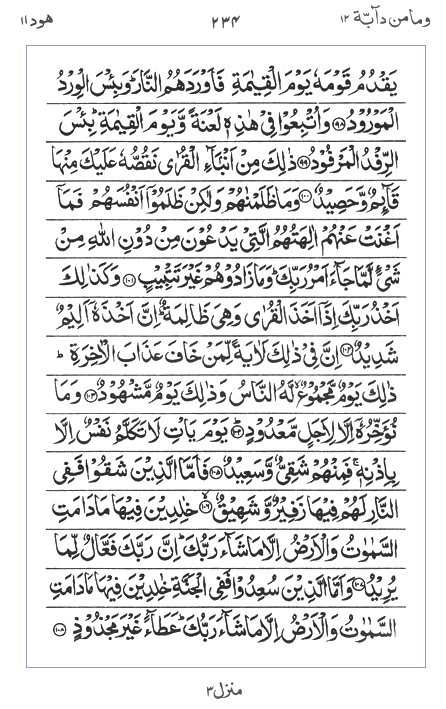 وما من دآبة ١٢ ٢٣٤ هود ١١
يَقْدُمُ قَوْمَهٗ يَوْمَ الْقِيٰمَةِ فَاَوْرَدَهُمُ النَّارَ ؕ وَبِئْسَ الْوِرْدُ
الْمَوْرُوْدُ ﴿۹۸﴾ وَاُتْبِعُوْا فِيْ هٰذِهٖ لَعْنَةً وَّيَوْمَ الْقِيٰمَةِ ؕ بِئْسَ
الرِّفْدُ الْمَرْفُوْدُ ﴿۹۹﴾ ذٰلِكَ مِنْ اَنْۢبَآءِ الْقُرٰى نَقُصُّهٗ عَلَيْكَ مِنْهَا
قَآئِمٌ وَّحَصِيْدٌ ﴿۱۰۰﴾ وَمَا ظَلَمْنٰهُمْ وَلٰكِنْ ظَلَمُوْۤا اَنْفُسَهُمْ فَمَاۤ
اَغْنَتْ عَنْهُمْ اٰلِهَتُهُمُ الَّتِيْ يَدْعُوْنَ مِنْ دُوْنِ اللّٰهِ مِنْ
شَيْءٍ لَّمَّا جَآءَ اَمْرُ رَبِّكَ ؕ وَمَا زَادُوْهُمْ غَيْرَ تَتْبِيْبٍ ﴿۱۰۱﴾ وَكَذٰلِكَ
اَخْذُ رَبِّكَ اِذَاۤ اَخَذَ الْقُرٰى وَهِيَ ظَالِمَةٌ ؕ اِنَّ اَخْذَهٗۤ اَلِيْمٌ
شَدِيْدٌ ﴿۱۰۲﴾ اِنَّ فِيْ ذٰلِكَ لَاٰيَةً لِّمَنْ خَافَ عَذَابَ الْاٰخِرَةِ ؕ
ذٰلِكَ يَوْمٌ مَّجْمُوْعٌ ۙ لَّهُ النَّاسُ وَذٰلِكَ يَوْمٌ مَّشْهُوْدٌ ﴿۱۰۳﴾ وَمَا
نُؤَخِّرُهٗۤ اِلَّا لِاَجَلٍ مَّعْدُوْدٍ ﴿۱۰۴﴾ يَوْمَ يَاْتِ لَا تَكَلَّمُ نَفْسٌ اِلَّا
بِاِذْنِهٖ ۚ فَمِنْهُمْ شَقِيٌّ وَّسَعِيْدٌ ﴿۱۰۵﴾ فَاَمَّا الَّذِيْنَ شَقُوْا فَفِي
النَّارِ لَهُمْ فِيْهَا زَفِيْرٌ وَّشَهِيْقٌ ﴿۱۰۶﴾ ۙ خٰلِدِيْنَ فِيْهَا مَا دَامَتِ
السَّمٰوٰتُ وَالْاَرْضُ اِلَّا مَا شَآءَ رَبُّكَ ؕ اِنَّ رَبَّكَ فَعَّالٌ لِّمَا
يُرِيْدُ ﴿۱۰۷﴾ وَاَمَّا الَّذِيْنَ سُعِدُوْا فَفِي الْجَنَّةِ خٰلِدِيْنَ فِيْهَا مَا دَامَتِ
السَّمٰوٰتُ وَالْاَرْضُ اِلَّا مَا شَآءَ رَبُّكَ ؕ عَطَآءً غَيْرَ مَجْذُوْذٍ ﴿۱۰۸﴾
منزل ٣